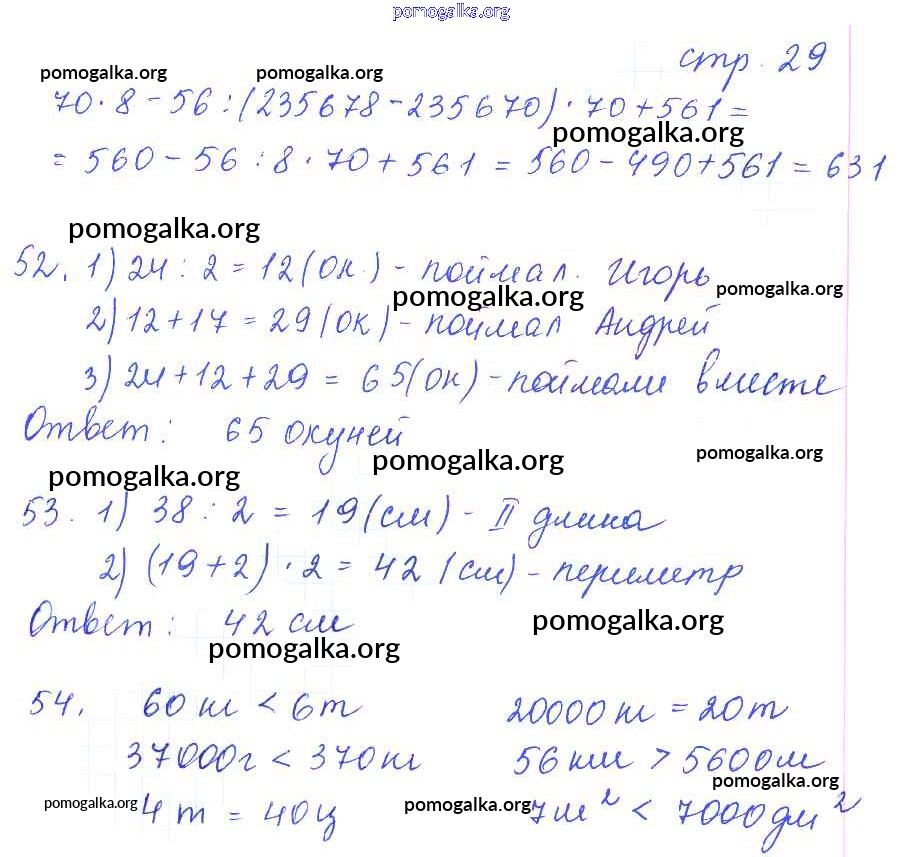 pomogalka.org
стр. 29
pomogalka.org pomogalka.org
70·8-56:(235678-235670)·70+561=
pomogalka.org
=560-56:8·70+561=560-490+561=631
pomogalka.org
52. 1) 24:2=12(ок.)-поймал. Игорь
pomogalka.org pomogalka.org
2) 12+17=29(ок)-поймал Андрей
3) 24+12+29=65(ок)-поймали вместе
Ответ: 65 окуней
pomogalka.org pomogalka.org pomogalka.org
53. 1) 38:2=19(см)-II длина
2) (19+2)·2=42(см)-периметр
Ответ: 42 см
pomogalka.org pomogalka.org
54. 60кг<6т 20000кг=20т
37000г<370кг 56км>5600м
pomogalka.org
4т=40ц 7м²<7000дм²
pomogalka.org pomogalka.org